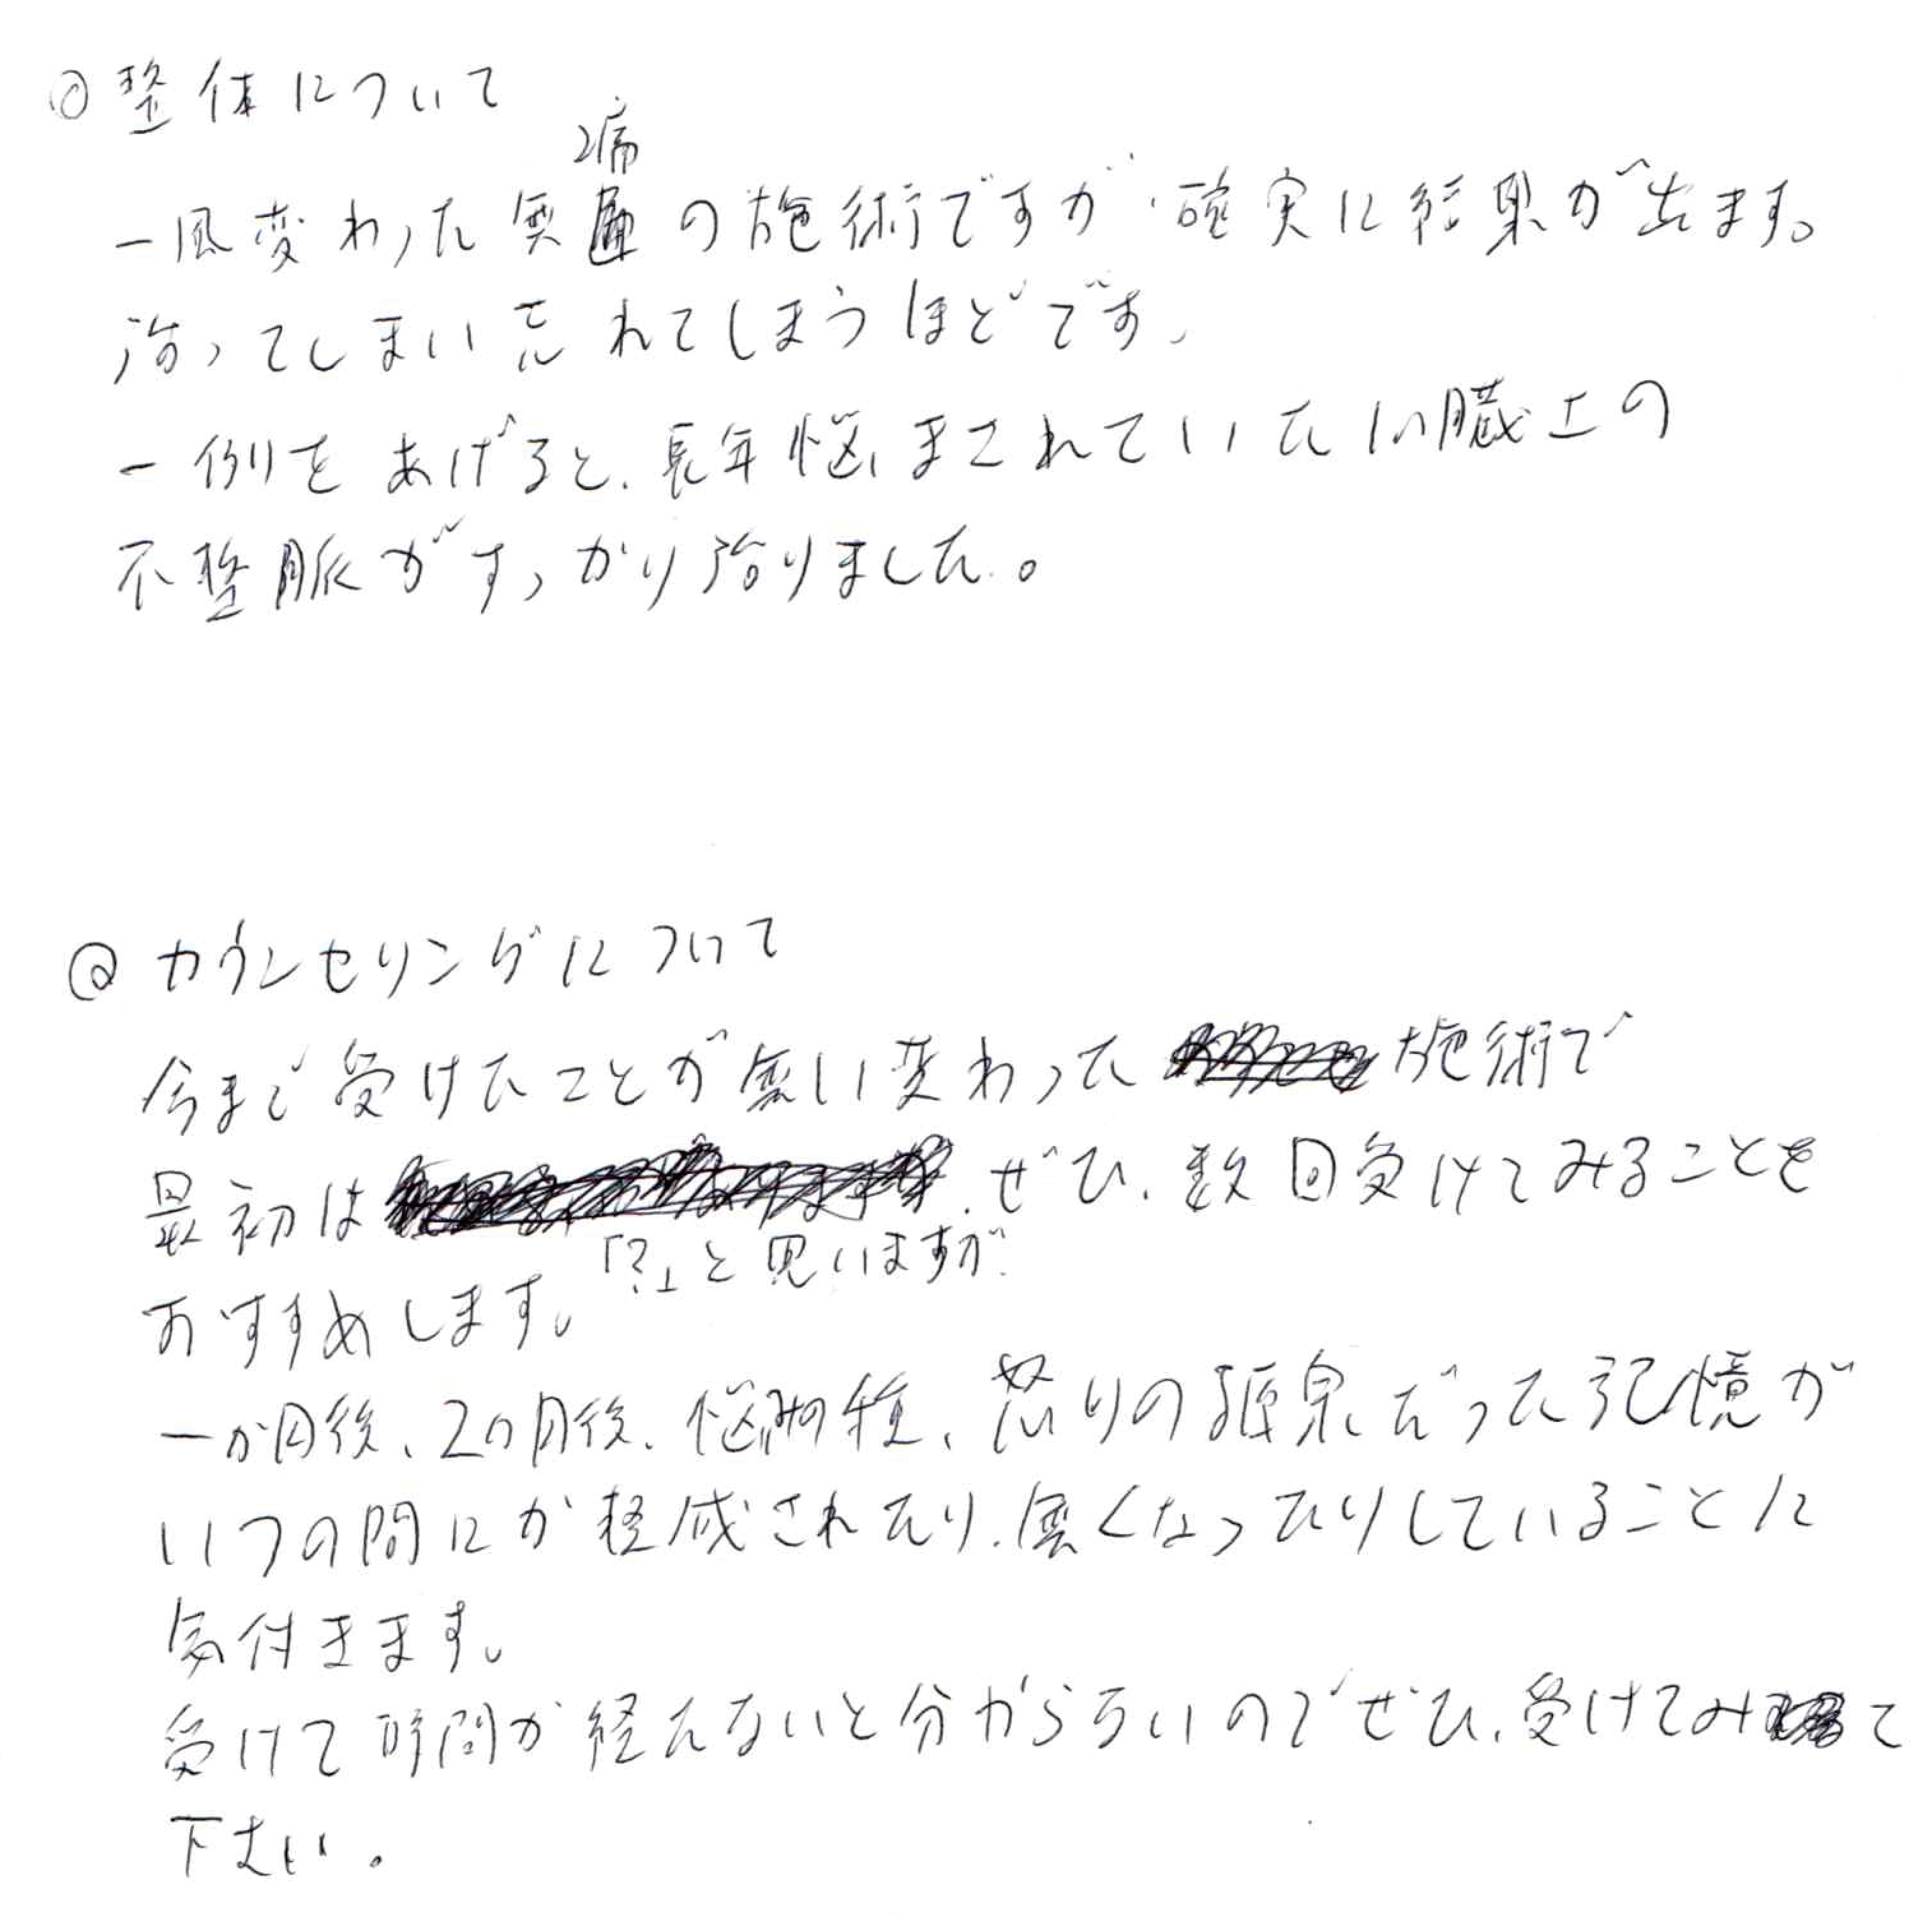 ◎整体について
一風変わった無痛の施術ですが、確実に結果が出ます。
治ってしまい忘れてしまうほどです。
一例をあげると、長年悩まされていた心臓上の
不整脈がすっかり治りました。
◎カウンセリングについて
今まで受けたことが無い変わった施術で
最初は「?」と思いますが、ぜひ、数回受けてみることを
おすすめします。
一か月後、2カ月後、悩みの種、怒りの源泉だった記憶が
いつの間にか軽減されたり、無くなったりしていることに
気付きます。
受けて時間が経たないと分からないのでぜひ、受けてみて
下さい。